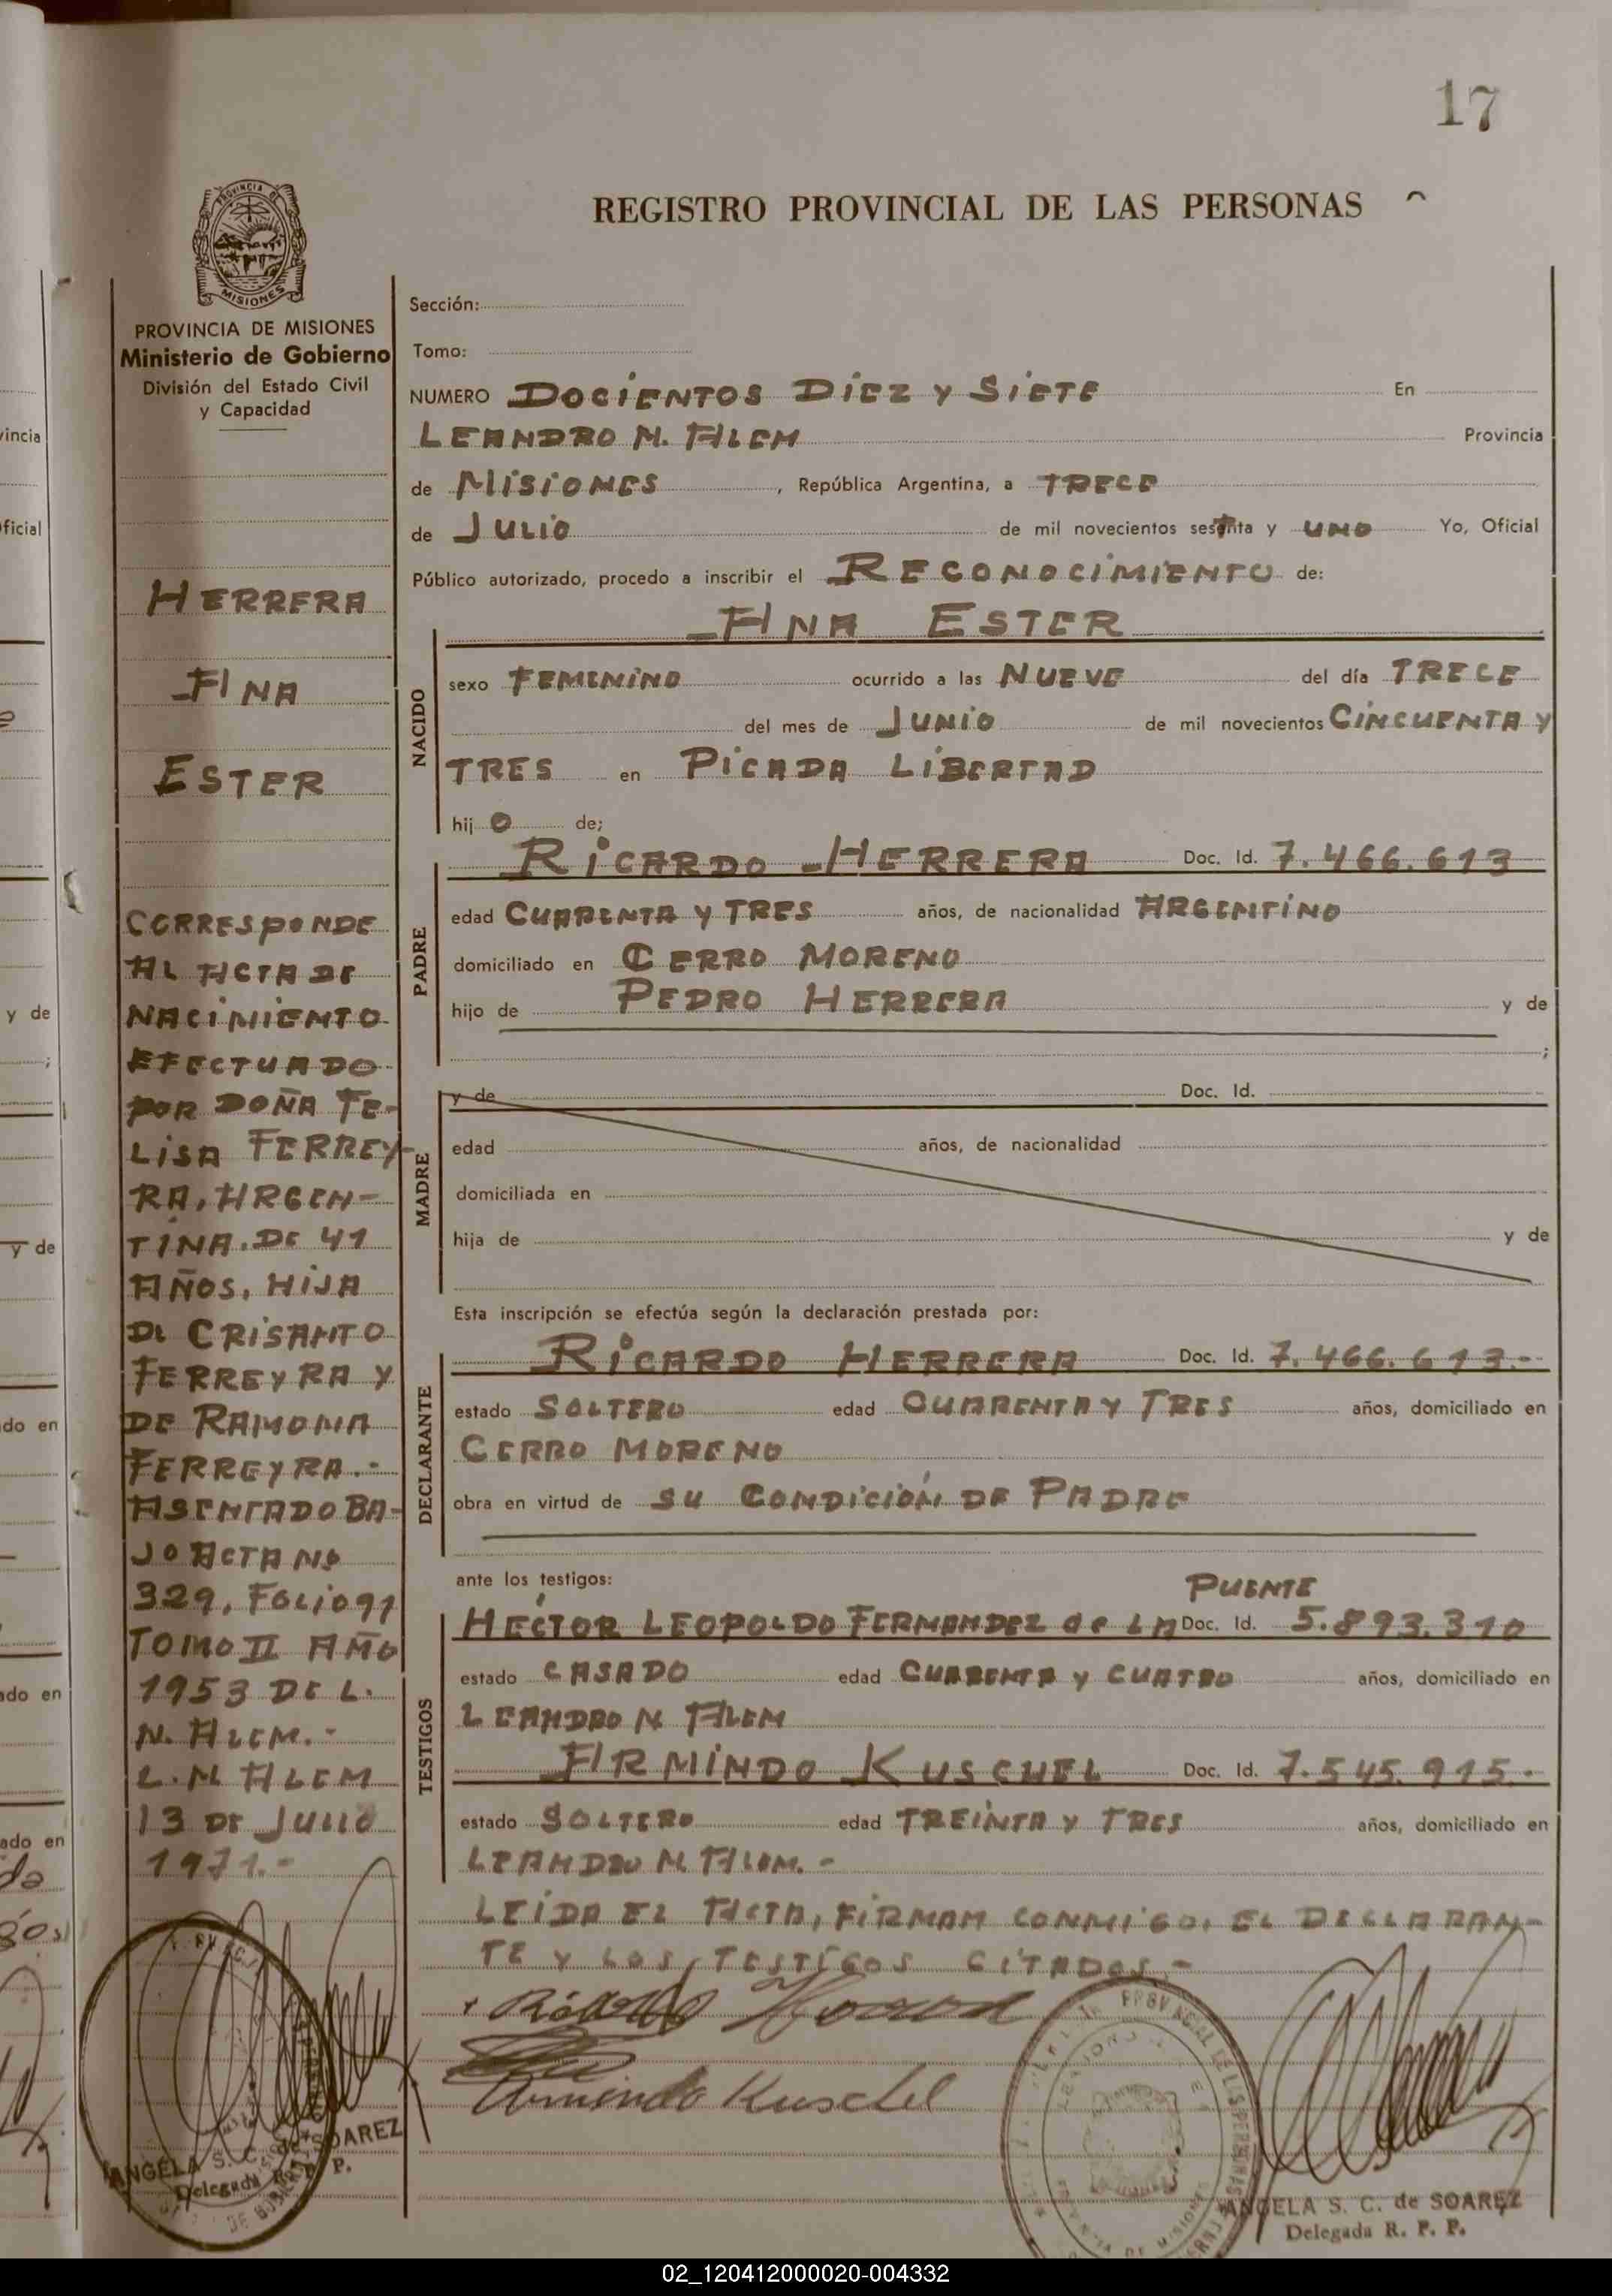 17
REGISTRO PROVINCIAL DE LAS PERSONAS
PROVINCIA DE MISIONES
Ministerio de Gobierno
División del Estado Civil
y Capacidad
HERRERA
ANA
ESTER
CORRESPONDE
AL ACTA DE
NACIMIENTO
EFECTUADO
POR DOÑA FE-
LISA FERREY-
RA, ARGEN-
TINA. DE 41
AÑOS, HIJA
DE CRISANTO
FERREYRA Y
DE RAMONA
FERREYRA.-
ASENTADO BA-
JO ACTA Nº
329, FOLIO 91
TOMO II AÑO
1953 DE L.
N. ALEM.-
L.N ALEM
13 DE JULIO
1971.-
ANGELA S. C. de SOAREZ
Delegada R. P. P.
Sección:
Tomo:
NUMERO DOCIENTOS DIEZ Y SIETE En
LEANDRO N. ALEM Provincia
de MISIONES, República Argentina, a TRECE
de JULIO de mil novecientos setenta y UNO Yo, Oficial
Público autorizado, procedo a inscribir el RECONOCIMIENTO de:
ANA ESTER
NACIDO
sexo FEMENINO ocurrido a las NUEVE del día TRECE
del mes de JUNIO de mil novecientos CINCUENTA Y
TRES en PICADA LIBERTAD
hij o de;
RICARDO HERRERA Doc. Id. 7.466.613
PADRE
edad CUARENTA Y TRES años, de nacionalidad ARGENTINO
domiciliado en CERRO MORENO
hijo de PEDRO HERRERA y de
;
y de Doc. Id.
MADRE
edad años, de nacionalidad
domiciliada en
hija de y de
Esta inscripción se efectúa según la declaración prestada por:
RICARDO HERRERA Doc. Id. 7.466.613.-
DECLARANTE
estado SOLTERO edad CUARENTA Y TRES años, domiciliado en
CERRO MORENO
obra en virtud de SU CONDICIÓN DE PADRE
ante los testigos:
PUENTE
HECTOR LEOPOLDO FERNANDEZ de LA Doc. Id. 5.893.310
TESTIGOS
estado CASADO edad CUARENTA Y CUATRO años, domiciliado en
LEANDRO N ALEM
ARMINDO KUSCHEL Doc. Id. 7.545.915.-
estado SOLTERO edad TREINTA Y TRES años, domiciliado en
LEANDRO N. ALEM.-
LEIDA EL ACTA, FIRMAN CONMIGO, EL DECLARAN-
TE Y LOS TESTIGOS CITADOS.-
Ricardo Herrera
Armindo Kuschel
ANGELA S. C. de SOAREZ
Delegada R. P. P.
02_120412000020-004332